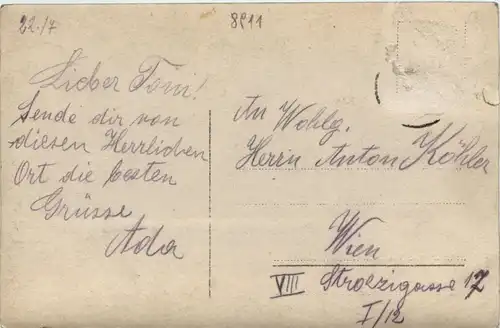 22./7
8911
Lieber Toni!
Sende dir von
diesen Herrlichen
Ort die besten
Grüsse
Ada
An Wohlg.
Herrn Anton Köhler
Wien
VIII Strozzigasse 17
I/12